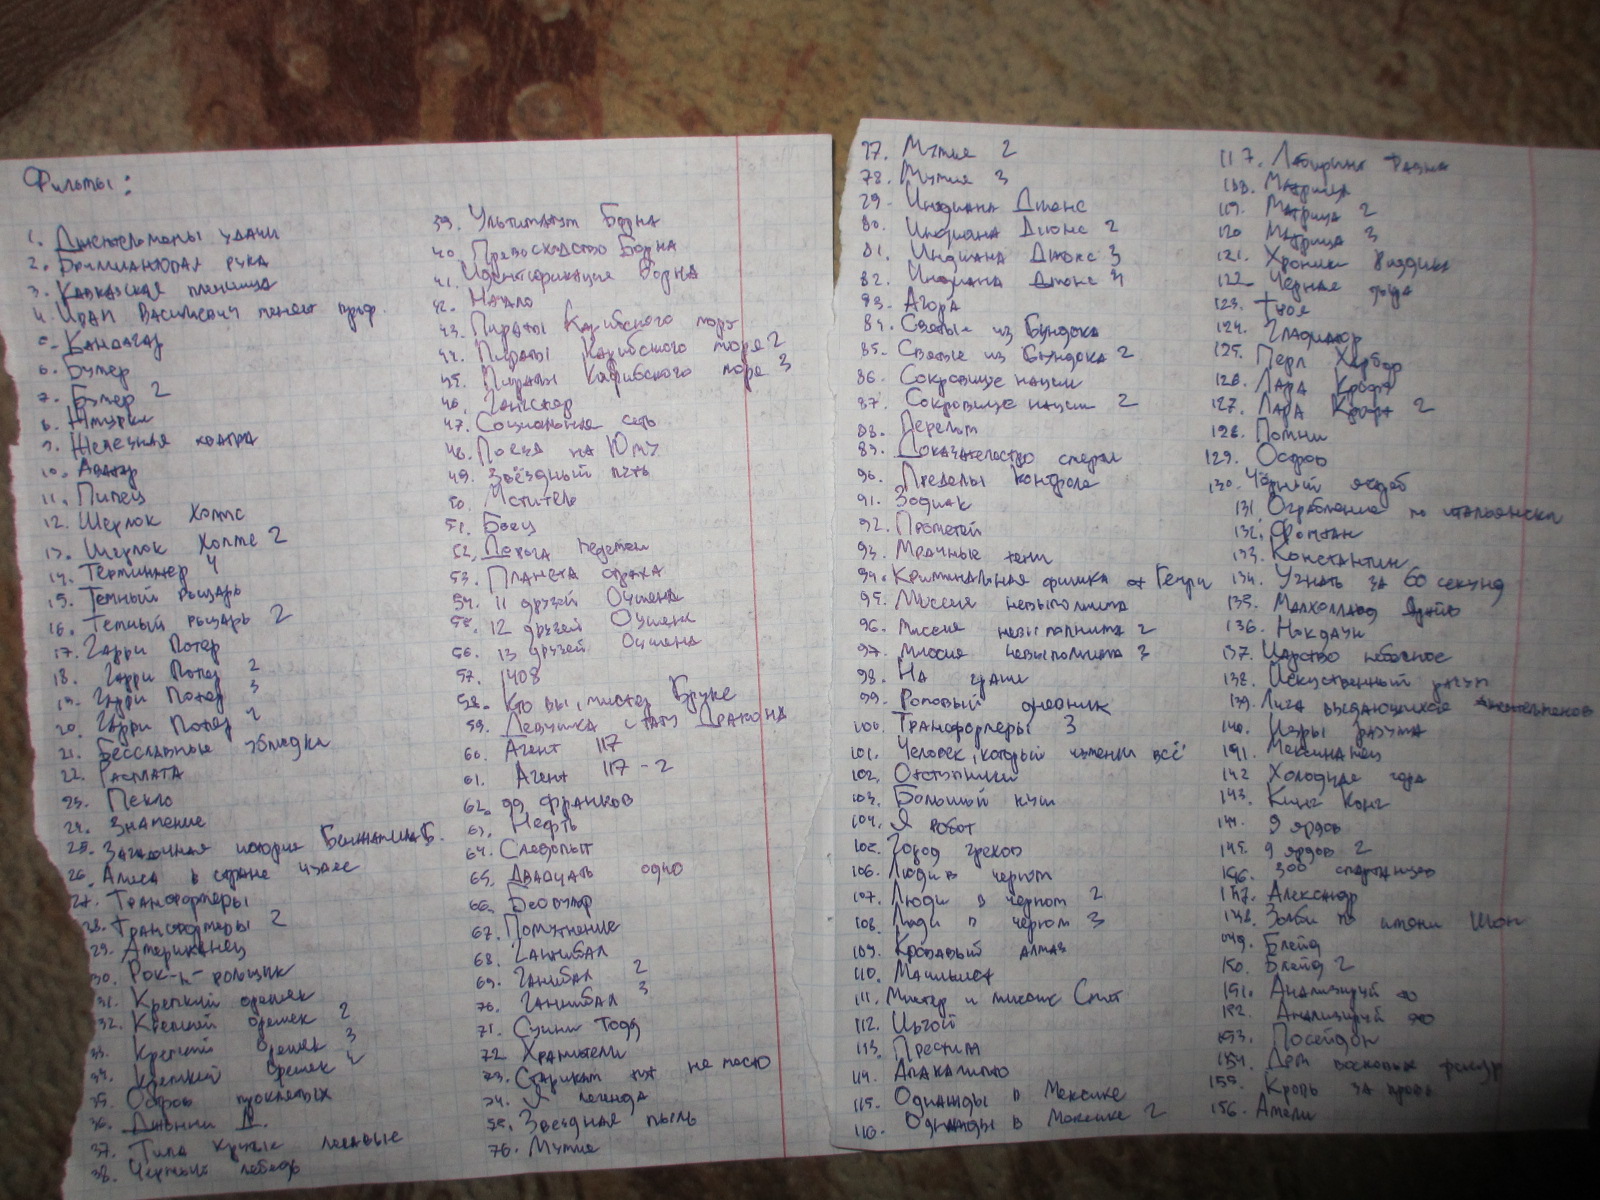 Фильмы:
1. Джентельмены удачи
2. Бриллиантовая рука
3. Кавказская пленница
4. Иван Васильевич меняет проф.
5. Кандагар
6. Бумер
7. Бумер 2
8. Жмурки
9. Железная хватка
10. Аватар
11. Пипец
12. Шерлок Холмс
13. Шерлок Холмс 2
14. Терминатер 4
15. Темный рыцарь
16. Темный рыцарь 2
17. Гарри Потер
18. Гарри Потер 2
19. Гарри Потер 3
20. Гарри Потер 4
21. Бесславные ублюдки
22. Расплата
23. Пекло
24. Знамение
25. Загадочная история Бенжамина Б.
26. Алиса в стране чудес
27. Трансформеры
28. Трансформеры 2
29. Американец
30. Рок-н-рольщик
31. Крепкий орешек
32. Крепкий орешек 2
33. Крепкий орешек 3
34. Крепкий орешек 4
35. Остров проклятых
36. Джонни Д.
37. Типа крутые легавые
38. Черный лебедь
39. Ультиматум Борна
40. Превосходство Борна
41. Идентификация Борна
42. Начало
43. Пираты Карибского моря
44. Пираты Карибского моря 2
45. Пираты Карибского моря 3
46. Гангстер
47. Социальная сеть
48. Поезд на Юму
49. Звёздный путь
50. Мститель
51. Боец
52. Дорога перемен
53. Планета страха
54. 11 друзей Оушена
55. 12 друзей Оушена
56. 13 друзей Оушена
57. 1408
58. Кто вы, мистер Брукс
59. Девушка с тату Дракона
60. Агент 117
61. Агент 117 - 2
62. 99 франков
63. Нефть
64. Следопыт
65. Двадцать одно
66. Беовульф
67. Помутнение
68. Ганнибал
69. Ганибал 2
70. Ганнибал 3
71. Суини Тодд
72. Хранители
73. Старикам тут не место
74. Я легенда
75. Звездная пыль
76. Мумия
77. Мумия 2
78. Мумия 3
79. Индиана Джонс
80. Индиана Джонс 2
81. Индиана Джонс 3
82. Индиана Джонс 4
83. Агора
84. Святые из Бундока
85. Святые из Бундока 2
86. Сокровище нации
87. Сокровище нации 2
88.
89. Доказательство смерти
90. Пределы контроля
91. Зодиак
92. Прометей
93. Мрачные тени
94. Криминальная фишка от Генри
95. Миссия невыполнима
96. Миссия невыполнима 2
97. Миссия невыполнима 3
98. На грани
99. Ромовый дневник
100. Трансформеры 3
101. Человек, который изменил всё
102. Отступники
103. Большой куш
104. Я робот
105. Город грехов
106. Люди в черном
107. Люди в черном 2
108. Люди в черном 3
109. Кровавый алмаз
110. Машинист
111. Мистер и миссис Смит
112. Изгой
113. Престиж
114. Апакалипто
115. Однажды в Мексике
116. Однажды в Мексике 2
117. Лабиринт Фавна
118. Матрица
119. Матрица 2
120 Матрица 3
121. Хроники Риддика
122 Черная дыра
123. Троя
124. Гладиатор
125. Перл Харбор
126. Лара Крофт
127. Лара Крофт 2
128. Помни
129. Остров
130. Чёрный ястреб
131 Ограбление по итальянски
132. Фонтан
133. Константин
134. Угнать за 60 секунд
135. Малхолланд Драйв
136. Нокдаун
137. Царство небесное
138. Искуственный разум
139. Лига выдающихся джентельменов
140. Игры разума
141. Мексиканец
142 Холодная гора
143. Кинг Конг
144. 9 ярдов
145. 9 ярдов 2
146. 300 спартанцев
147. Александр
148. Зомби по имени Шон
149. Блейд
150. Блейд 2
151. Анализируй это
152. Анализируй то
153. Посейдон
154. Дом восковых фигур
155. Кровь за кровь
156. Амели